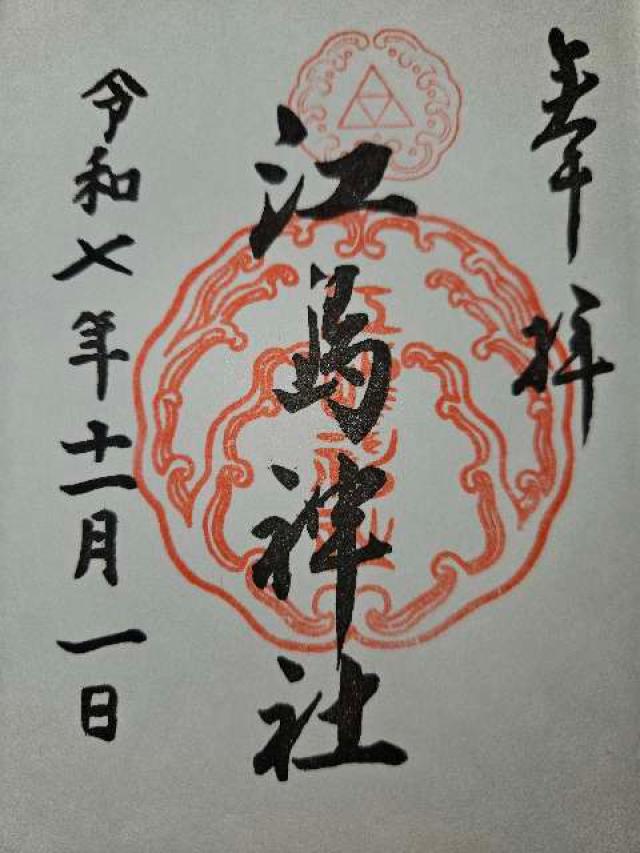 奉拝
江島神社
令和七年十一月一日